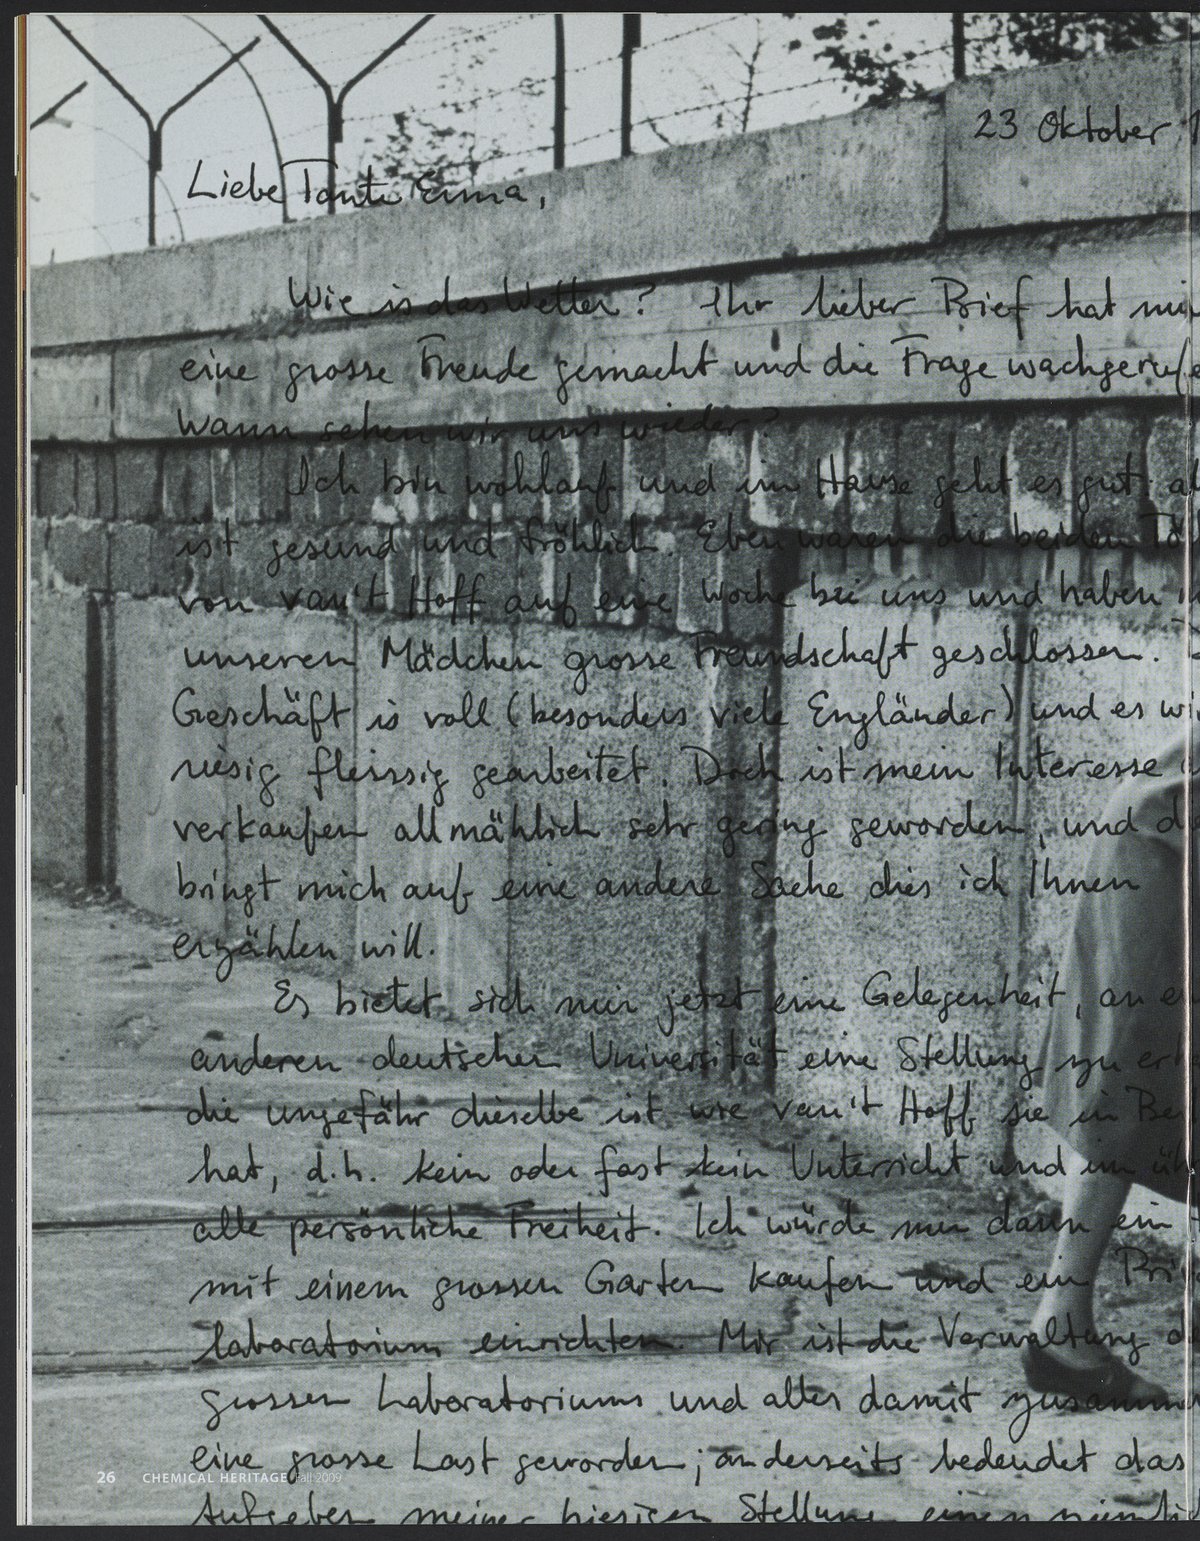 23 Oktober
Liebe Tante Erma,
Wie is das Wetter? Ihr lieber Brief hat mir
eine grosse Freude gemacht und die Frage wachgerufe
Wann sehen wir uns wieder?
Ich bin wohlauf und im Hause geht es gut: al
ist gesund und fröhlich. Eben waren die beiden Tö
von van't Hoff auf eine Woche bei uns und haben
unseren Mädchen grosse Freundschaft geschlossen.
Geschäft is voll (besonders viele Engländer) und es wi
riesig fleissig gearbeitet. Doch ist mein Interesse
verkaufen allmählich sehr gering geworden, und d
bringt mich auf eine andere Sache dies ich Ihnen
erzählen will.
Es bietet sich mir jetzt eine Gelegenheit, an e
anderen deutschen Universität eine Stellung zu er
die ungefähr dieselbe ist wie van't Hoff sie in Be
hat, d.h. kein oder fast kein Unterricht und im üb
alle persönliche Freiheit. Ich würde mir dann ein
mit einem grossen Garten kaufen und ein Pri
laboratorium einrichten. Mir ist die Verwaltung
grossen Laboratoriums und alles damit zusamm
eine grosse Last geworden; anderseits bedeudet das
Aufgeben meiner hiesigen Stellung einen ziemlich
26 CHEMICAL HERITAGE Fall 2009